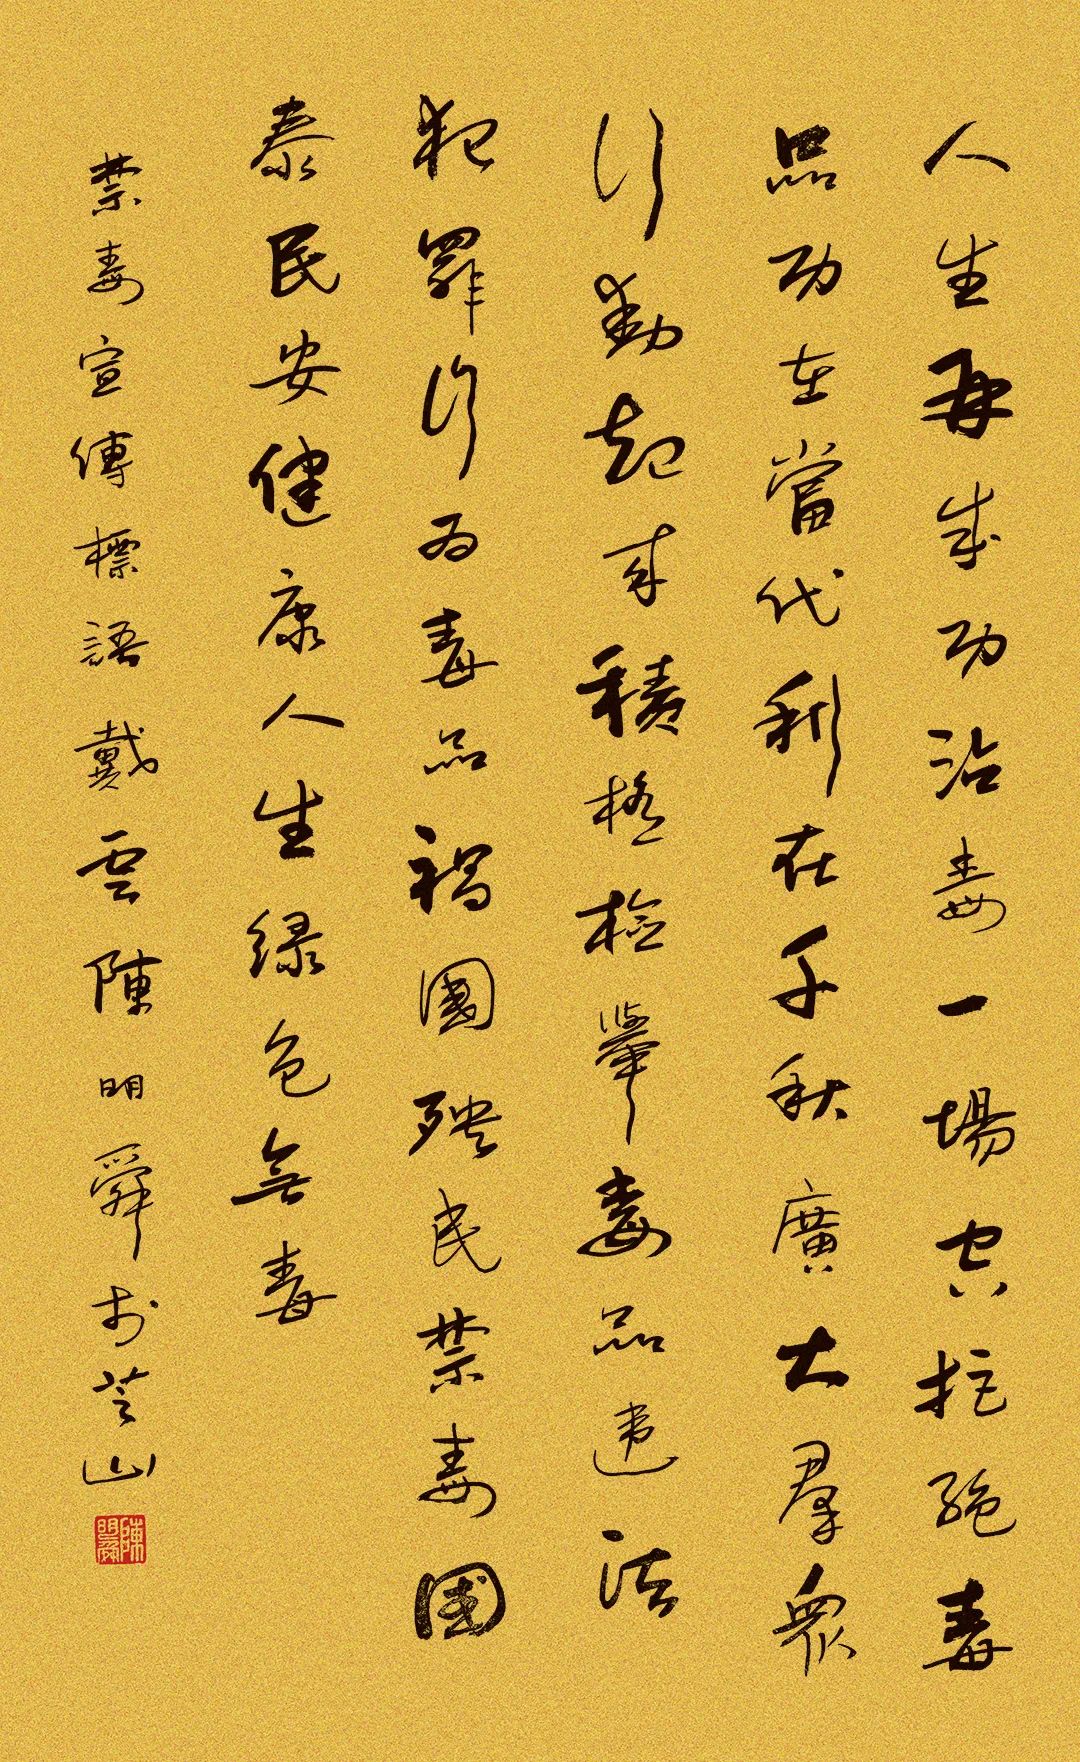 人生再成功沾毒一場空拒絕毒
品功在當代利在千秋廣大群眾
行動起來積極檢舉毒品违法
犯罪行为毒品禍國殃民禁毒國
泰民安健康人生绿色無毒
禁毒宣傳標語戴雲陳明舜書於芝山
陳明舜